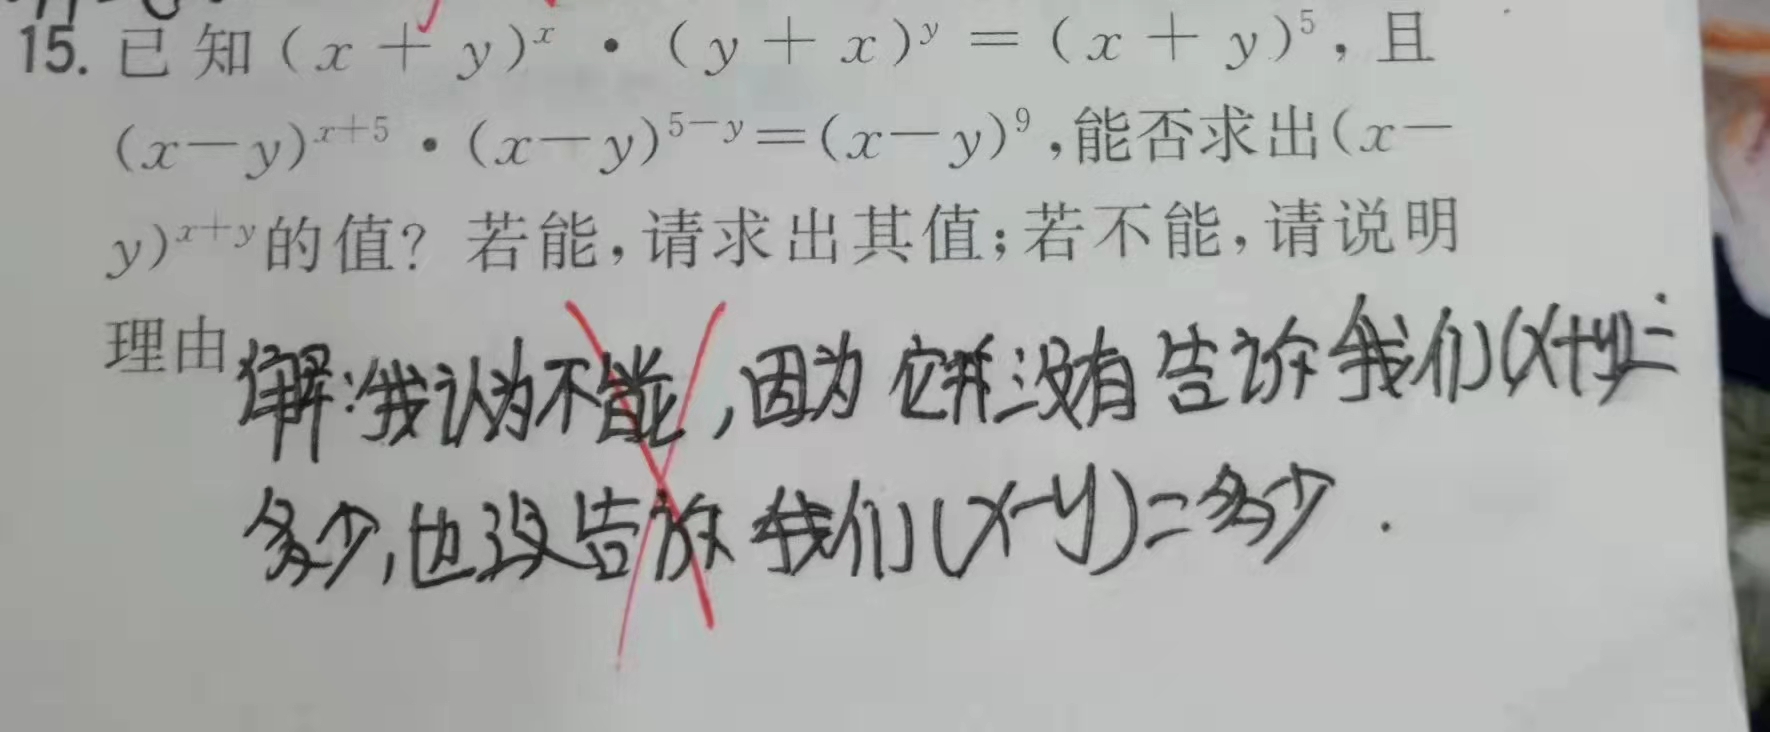 15. 已知(x+y)ˣ·(y+x)ʸ=(x+y)⁵,且
(x-y)ˣ⁺⁵·(x-y)⁵⁻ʸ=(x-y)⁹,能否求出(x-
y)ˣ⁺ʸ的值? 若能,请求出其值;若不能,请说明
理由
解:我认为不能,因为它并没有告诉我们(x+y)=
多少,也没告诉我们(x-y)=多少.